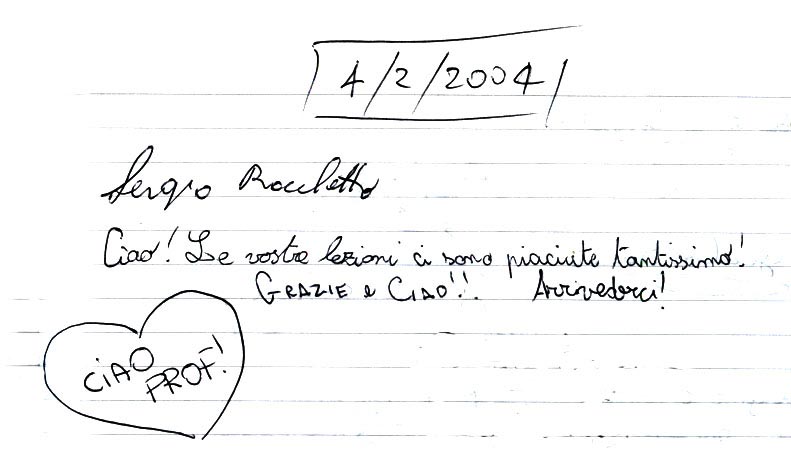 4/2/2004
Sergio
Ciao! Le vostre lezioni ci sono piaciute tantissimo!
GRAZIE e CIAO!! Arrivederci!
CIAO
PROF!